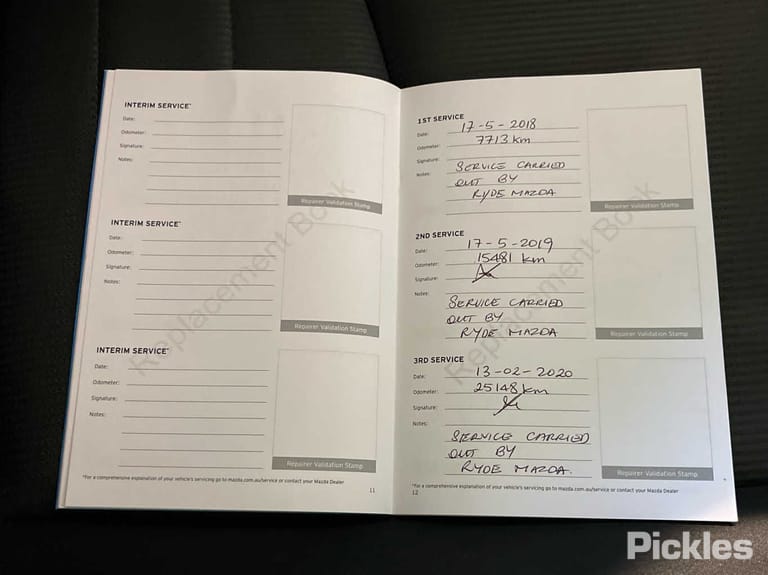 INTERIM SERVICE*
Date:
Odometer:
Signature:
Notes:
Repairer Validation Stamp
INTERIM SERVICE*
Date:
Odometer:
Signature:
Notes:
Repairer Validation Stamp
INTERIM SERVICE*
Date:
Odometer:
Signature:
Notes:
Repairer Validation Stamp
*For a comprehensive explanation of your vehicle's servicing go to mazda.com.au/service or contact your Mazda Dealer
11
Replacement Book
1ST SERVICE
Date: 17-5-2018
Odometer: 7713 km
Signature:
Notes: SERVICE CARRIED
OUT BY
RYDE MAZDA
Repairer Validation Stamp
2ND SERVICE
Date: 17-5-2019
Odometer: 15481 km
Signature:
Notes:
SERVICE CARRIED
OUT BY
RYDE MAZDA
Repairer Validation Stamp
3RD SERVICE
Date: 13-02-2020
Odometer: 25148 km
Signature:
Notes:
SERVICE CARRIED
OUT BY
RYDE MAZDA.
Repairer Validation Stamp
*For a comprehensive explanation of your vehicle's servicing go to mazda.com.au/service or contact your Mazda Dealer
12
Replacement Book
Pickles